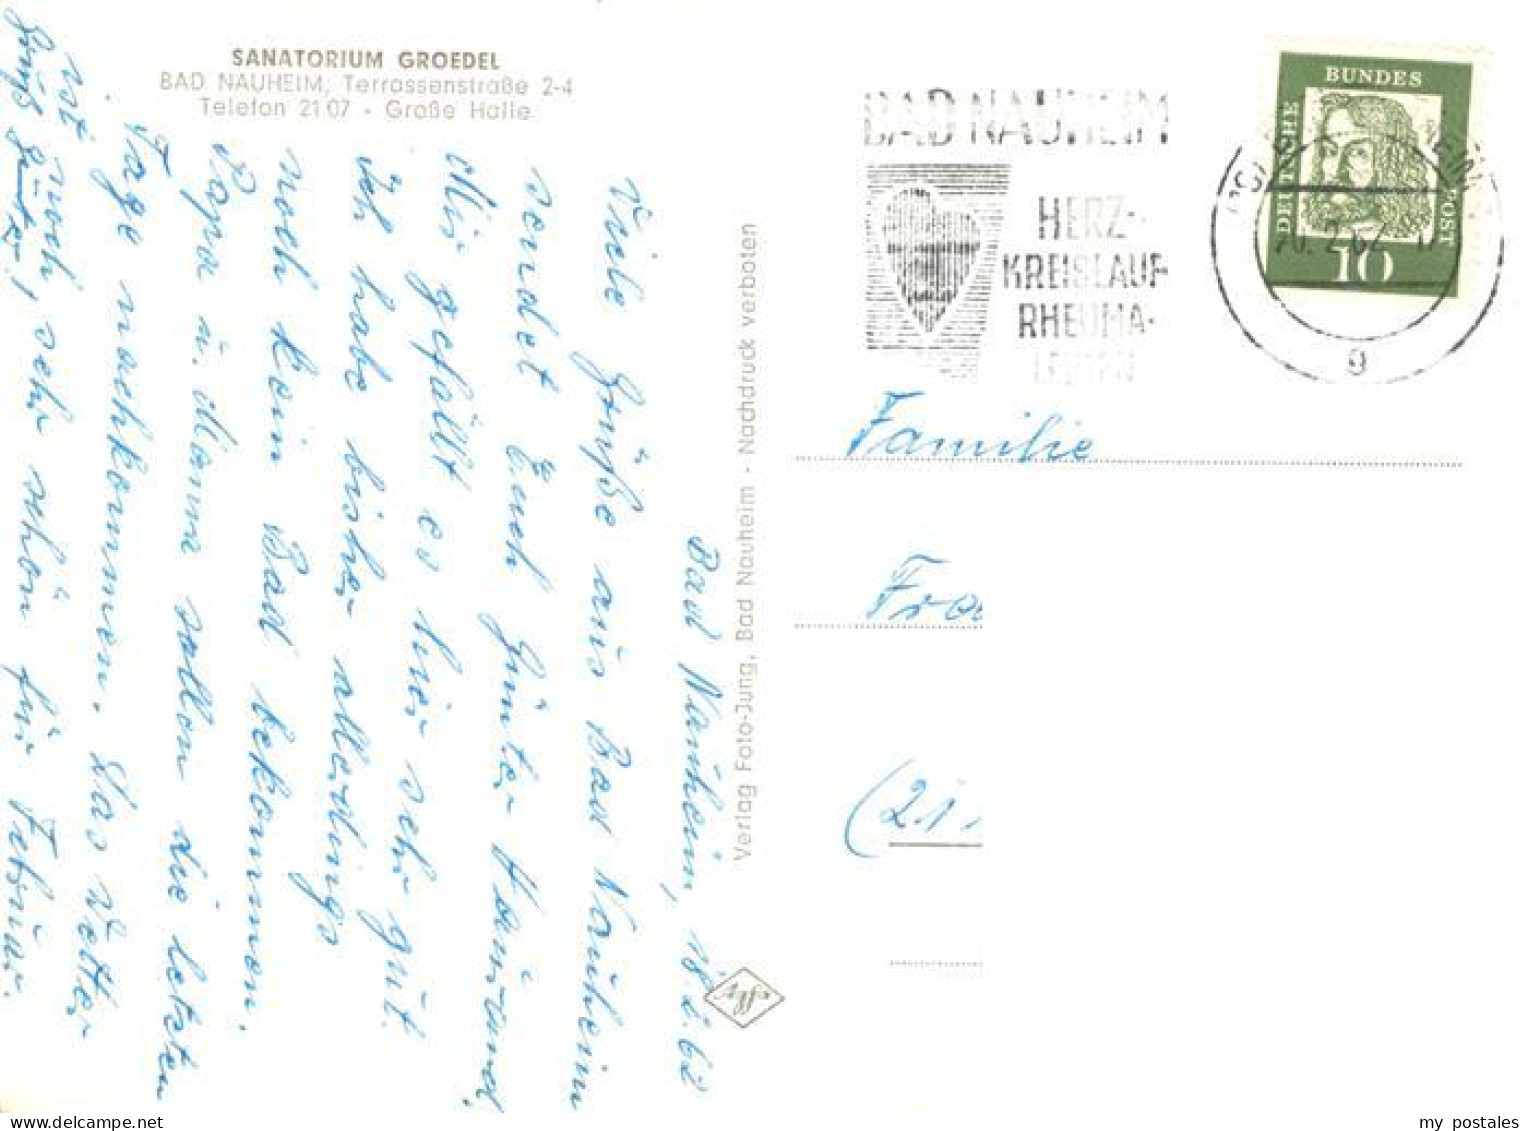 SANATORIUM GROEDEL
BAD NAUHEIM, Terrassenstraße 2-4
Telefon 21 07 - Große Halle
Bad Nauheim, 18.2.62
Viele Grüße aus Bad Nauheim
sendet Euch Günter
Mir gefällt es hier sehr gut.
Ich habe bisher allerdings
noch kein Bad bekommen.
Papa u. Mama sollen die letzten
Tage nachkommen. Das Wetter
ist noch sehr schön für Februar.
Gruß Günter
Verlag Foto-Jung, Bad Nauheim - Nachdruck verboten
BAD NAUHEIM
HERZ-
KREISLAUF
RHEUMA-
LEIDEN
DEUTSCHE
BUNDES
POST
10
g
Familie
(21
my postales